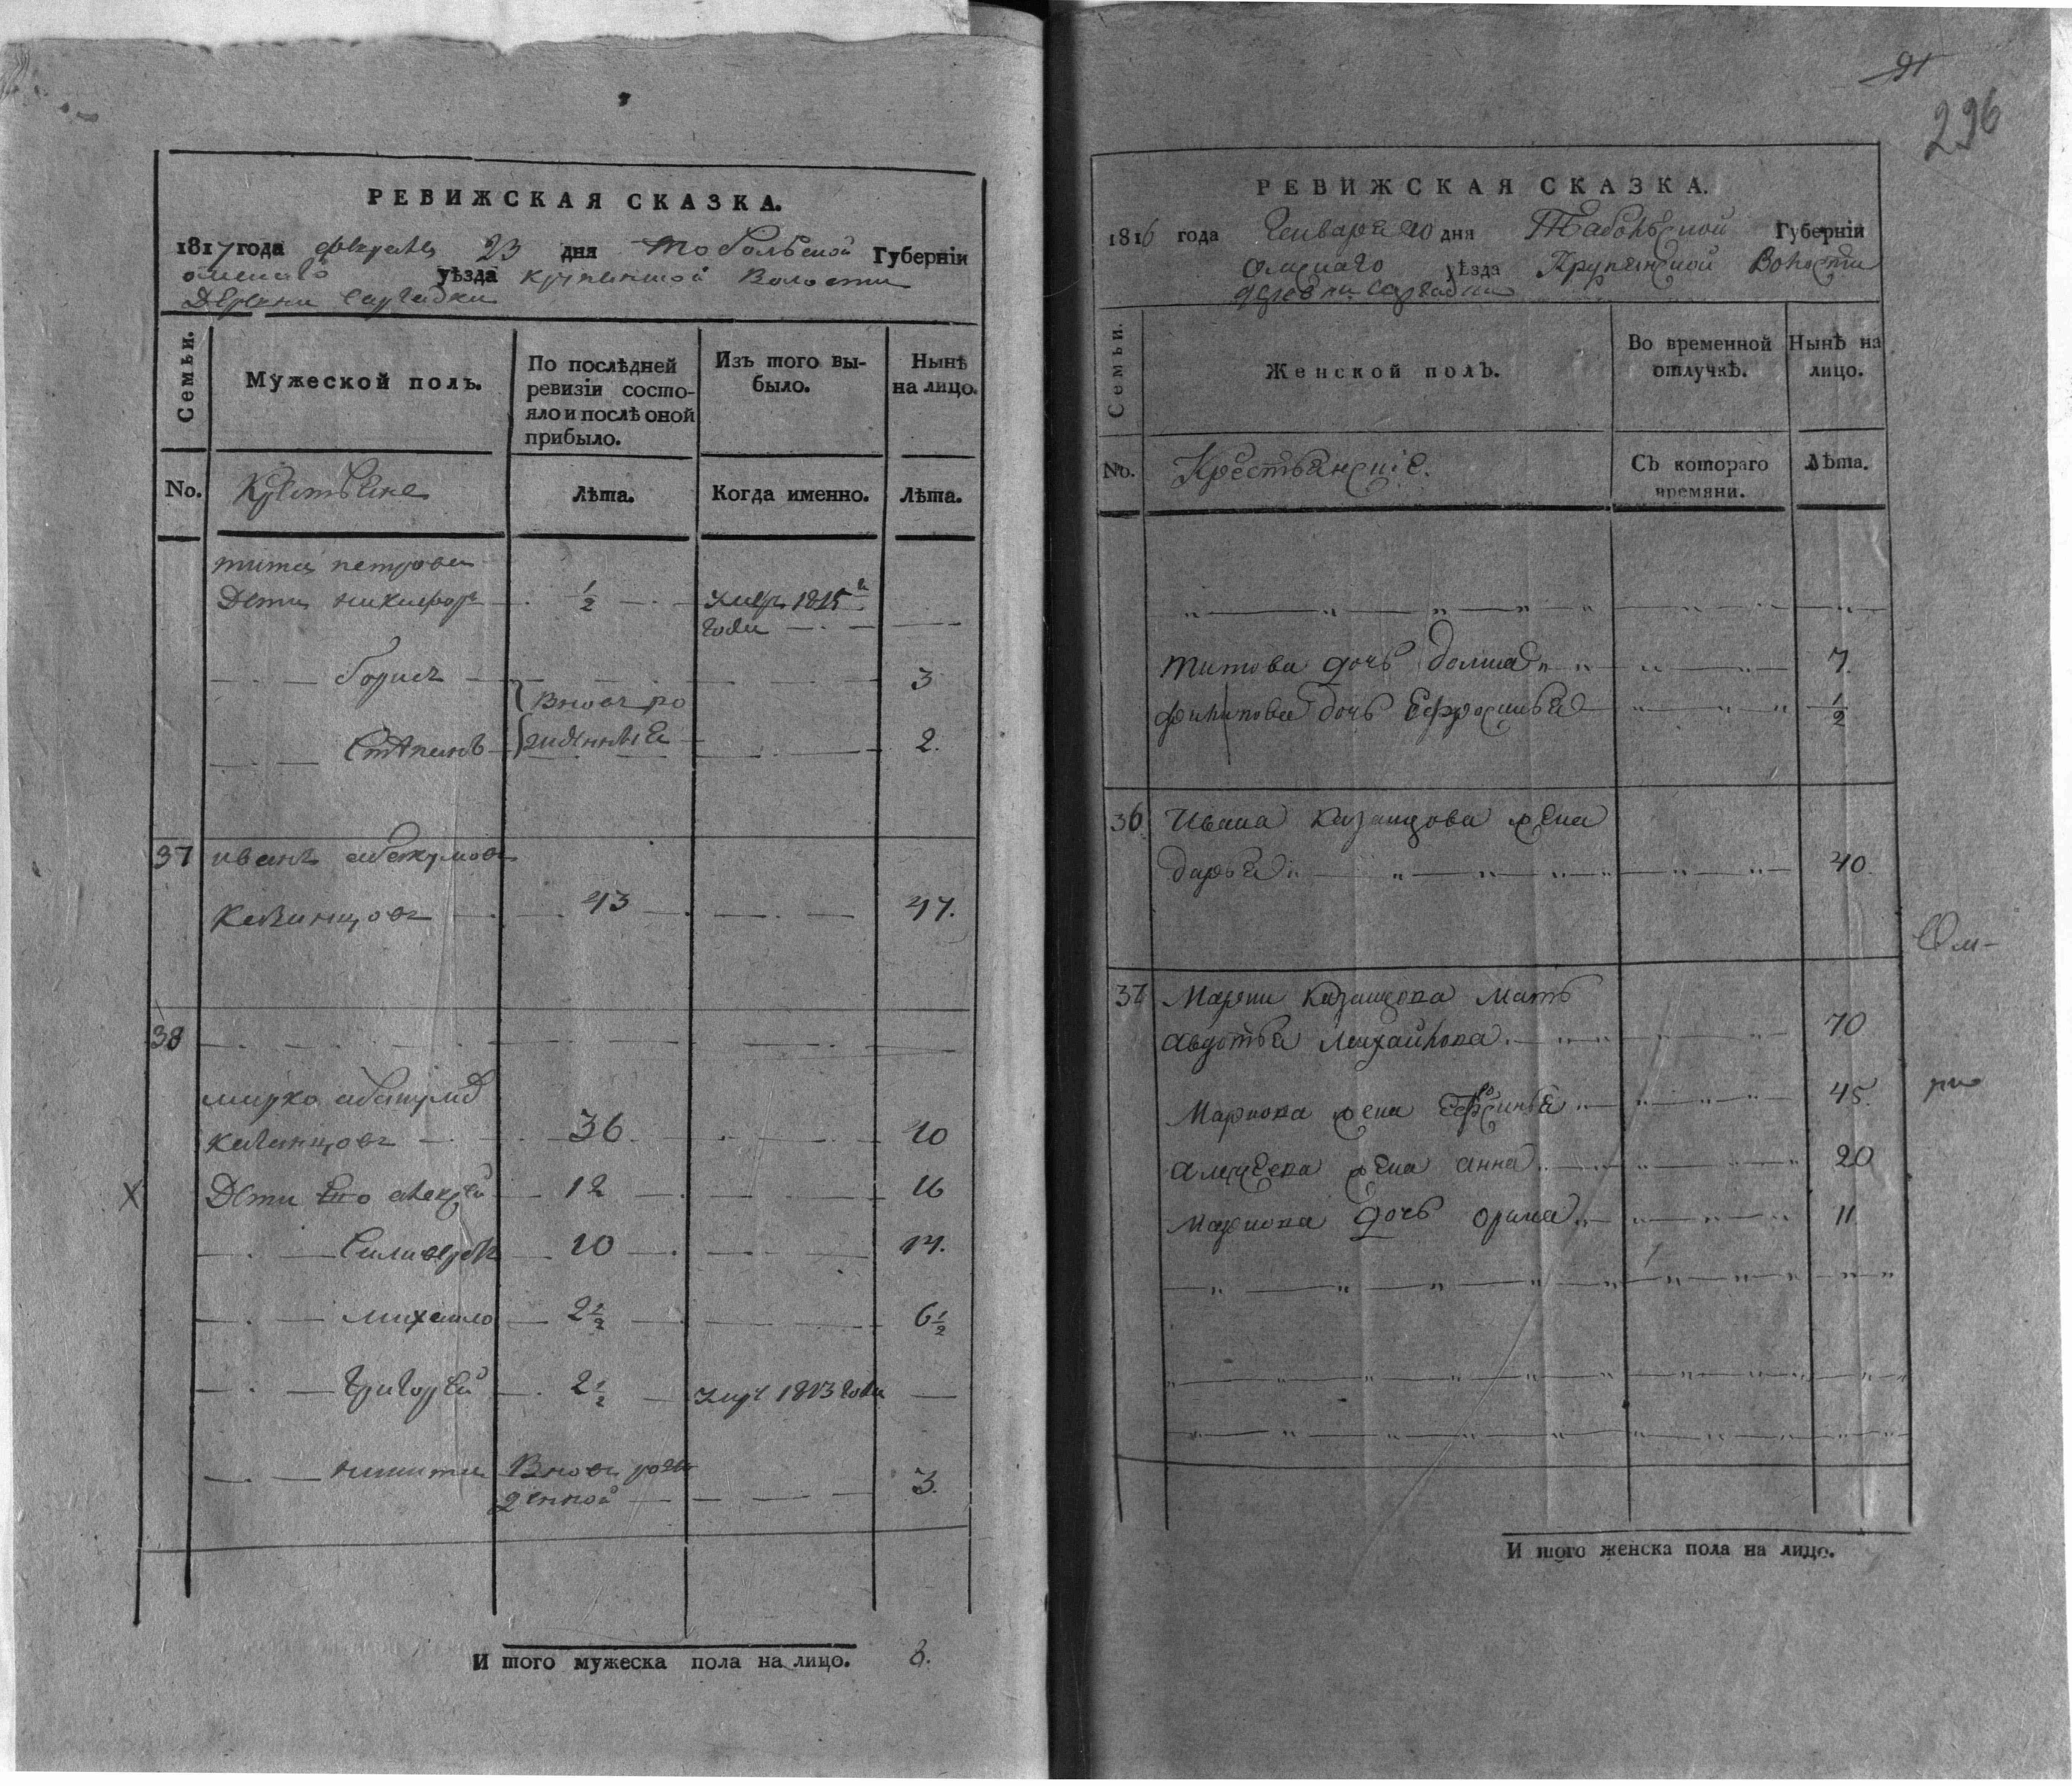 РЕВИЖСКАЯ СКАЗКА.
1817 года февраля 23 дня Тобольской Губерніи
омскаго уѣзда крупянской Волости
Деревни Саргадки
Семьи.
Мужеской полъ.
По послѣдней ревизіи состо-
яло и послѣ оной
прибыло.
Изъ того вы-
было.
Нынѣ
на лицо.
No.
Крестьяне
Лѣта.
Когда именно.
Лѣта.
тита петрова
Дети никифоръ ½ умеръ 1815г
года
борисъ 3
Вновь ро
жденные
Степанъ 2.
37 иванъ абакумовъ
казанцовъ 43 47.
38
марко абакумов
казанцовъ 36 40
Х Дети его алексей 12 16
Силиверстъ 10 14.
михаило 2½ 6½
Григорей 2½ умре 1813 года
никита Вновь рож
денной 3.
И того мужеска пола на лицо. 8.
91
296
РЕВИЖСКАЯ СКАЗКА.
1816 года Генваря 20 дня Табольской Губерніи
Омскаго уѣзда Крупянской Волости
деревни Саргадки
Семьи.
Женской полъ.
Во временной
отлучкѣ.
Нынѣ на
лицо.
No.
Крестьянскіе.
Съ котораго
времяни.
Лѣта.
титова дочь домна 7.
филипова дочь Ефросинья ½
36 Ивана казанцова жена
дарья 40.
37 Марки казанцова мать
авдотья михайлова 70
Маркова жена Ефросинья 45.
алексеева жена анна 20
Маркова дочь орина 11
И того женска пола на лицо.